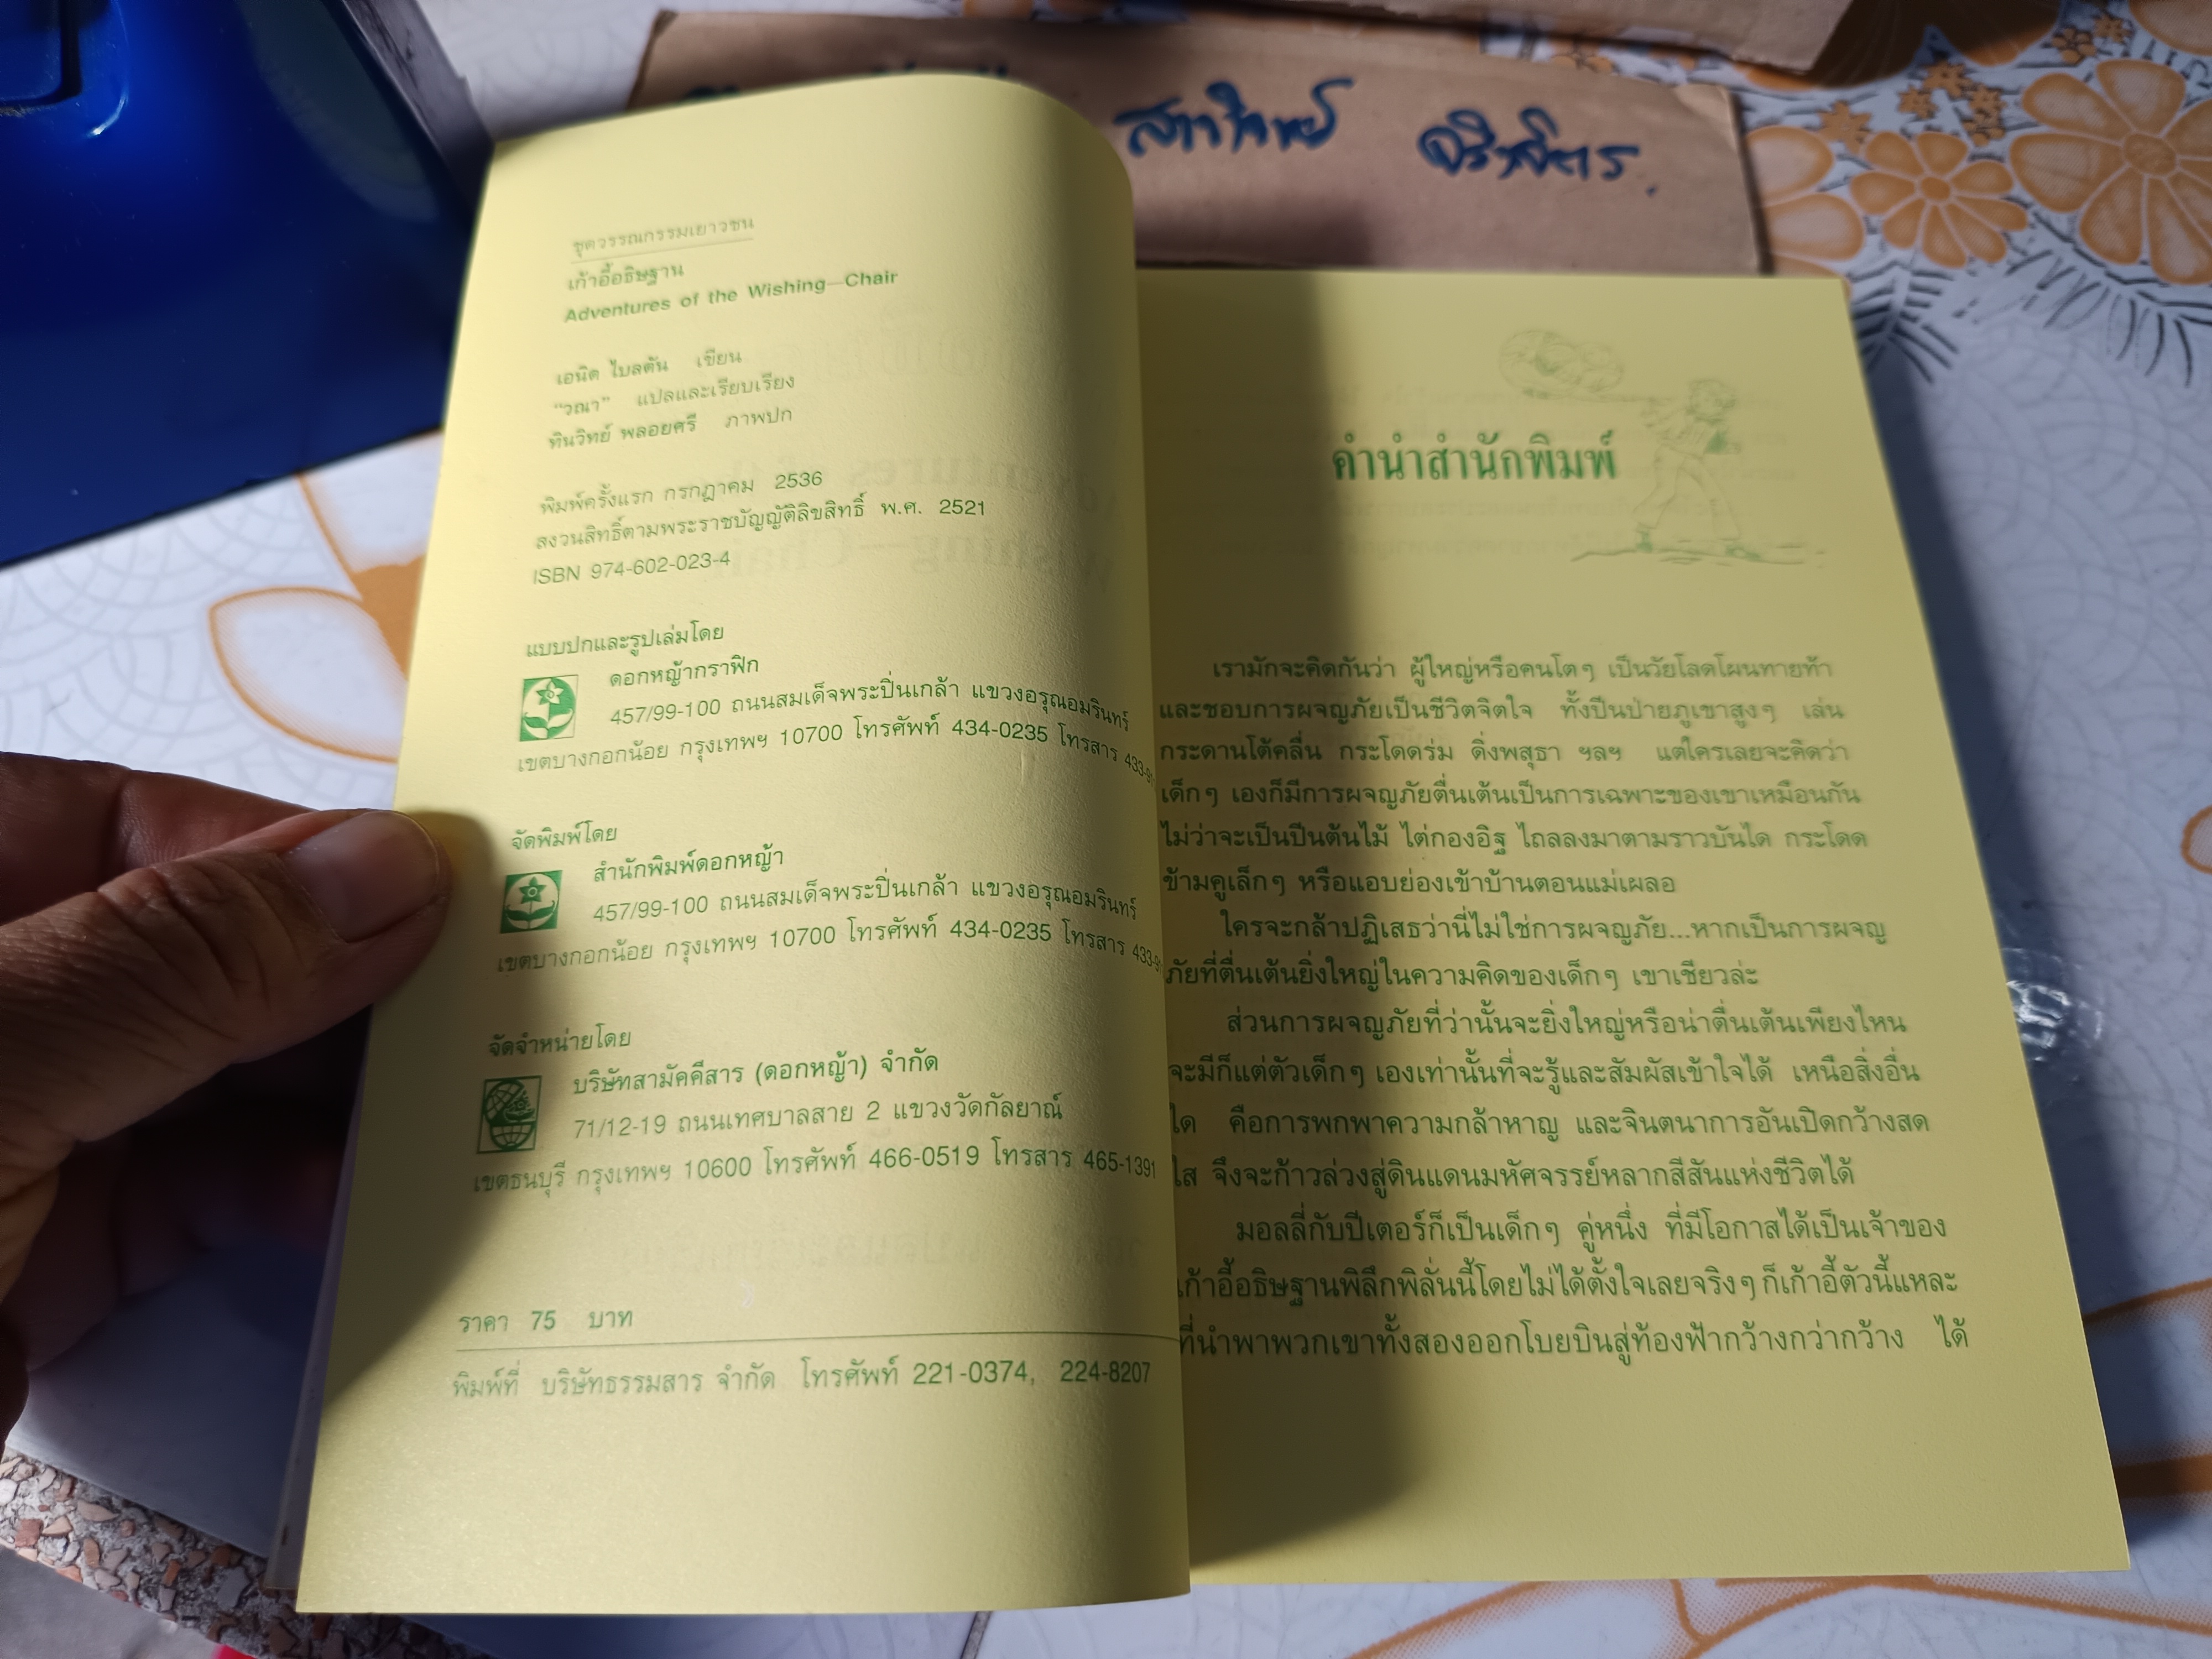 สาวิทย์
ชุดวรรณกรรมเยาวชน
เก้าอี้อธิษฐาน
Adventures of the Wishing—Chair
เอนิด ไบลตัน เขียน
“วณา” แปลและเรียบเรียง
ทินวิทย์ พลอยศรี ภาพปก
พิมพ์ครั้งแรก กรกฎาคม 2536
สงวนสิทธิ์ตามพระราชบัญญัติลิขสิทธิ์ พ.ศ. 2521
ISBN 974-602-023-4
แบบปกและรูปเล่มโดย
ดอกหญ้ากราฟิก
457/99-100 ถนนสมเด็จพระปิ่นเกล้า แขวงอรุณอมรินทร์
เขตบางกอกน้อย กรุงเทพฯ 10700 โทรศัพท์ 434-0235 โทรสาร
จัดพิมพ์โดย
สำนักพิมพ์ดอกหญ้า
457/99-100 ถนนสมเด็จพระปิ่นเกล้า แขวงอรุณอมรินทร์
เขตบางกอกน้อย กรุงเทพฯ 10700 โทรศัพท์ 434-0235 โทรสาร
จัดจำหน่ายโดย
บริษัทสามัคคีสาร (ดอกหญ้า) จำกัด
71/12-19 ถนนเทศบาลสาย 2 แขวงวัดกัลยาณ์
เขตธนบุรี กรุงเทพฯ 10600 โทรศัพท์ 466-0519 โทรสาร 465-1391
ราคา 75 บาท
พิมพ์ที่ บริษัทธรรมสาร จำกัด โทรศัพท์ 221-0374, 224-8207
คำนำสำนักพิมพ์
เรามักจะคิดกันว่า ผู้ใหญ่หรือคนโตๆ เป็นวัยโลดโผนทายท้า
และชอบการผจญภัยเป็นชีวิตจิตใจ ทั้งปีนป่ายภูเขาสูงๆ เล่น
กระดานโต้คลื่น กระโดดร่ม ดิ่งพสุธา ฯลฯ แต่ใครเลยจะคิดว่า
เด็กๆ เองก็มีการผจญภัยตื่นเต้นเป็นการเฉพาะของเขาเหมือนกัน
ไม่ว่าจะเป็นปีนต้นไม้ ไต่กองอิฐ ไถลลงมาตามราวบันได กระโดด
ข้ามคูเล็กๆ หรือแอบย่องเข้าบ้านตอนแม่เผลอ
ใครจะกล้าปฏิเสธว่านี่ไม่ใช่การผจญภัย...หากเป็นการผจญ
ภัยที่ตื่นเต้นยิ่งใหญ่ในความคิดของเด็กๆ เขาเชียวล่ะ
ส่วนการผจญภัยที่ว่านั้นจะยิ่งใหญ่หรือน่าตื่นเต้นเพียงไหน
จะมีก็แต่ตัวเด็กๆ เองเท่านั้นที่จะรู้และสัมผัสเข้าใจได้ เหนือสิ่งอื่น
ใด คือการพกพาความกล้าหาญ และจินตนาการอันเปิดกว้างสด
ใส จึงจะก้าวล่วงสู่ดินแดนมหัศจรรย์หลากสีสันแห่งชีวิตได้
มอลลี่กับปีเตอร์ก็เป็นเด็กๆ คู่หนึ่ง ที่มีโอกาสได้เป็นเจ้าของ
เก้าอี้อธิษฐานพิลึกพิลั่นนี้โดยไม่ได้ตั้งใจเลยจริงๆ ก็เก้าอี้ตัวนี้แหละ
ที่นำพาพวกเขาทั้งสองออกโบยบินสู่ท้องฟ้ากว้างกว่ากว้าง ได้